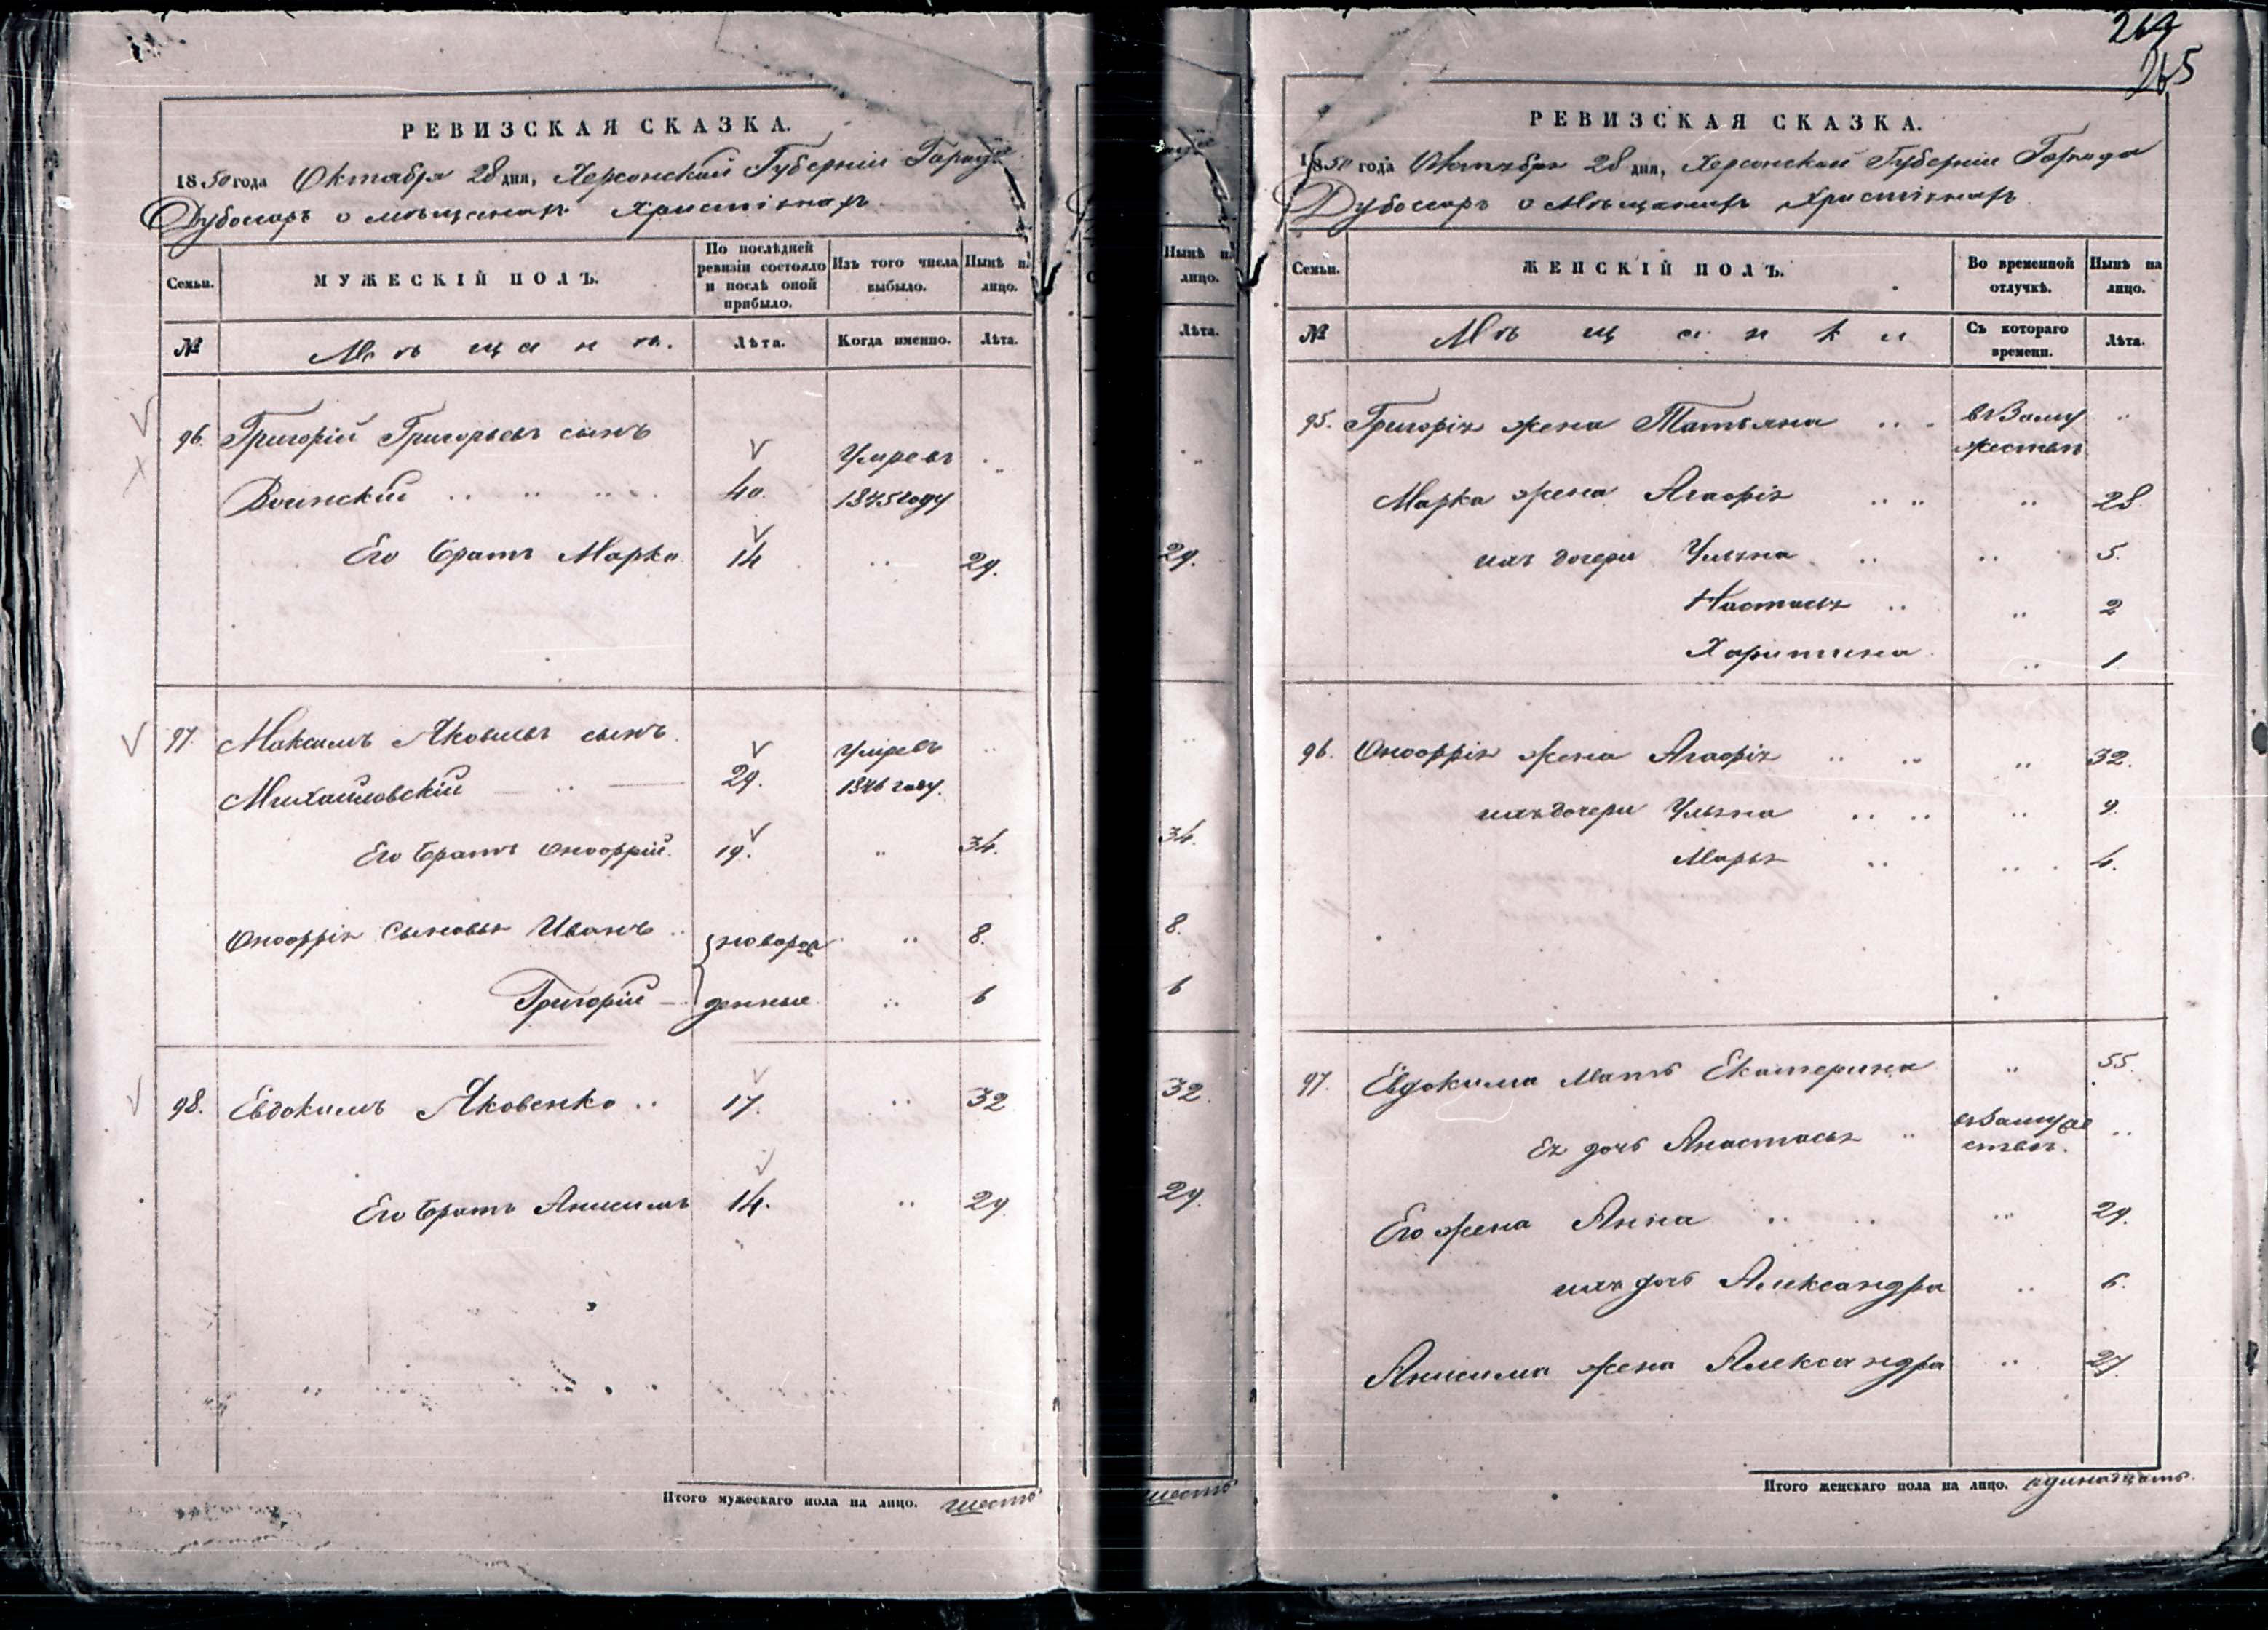 РЕВИЗСКАЯ СКАЗКА.
1850 года Октября 28 дня, Херсонской Губерніи Города
Дубоссаръ о мѣщанахъ Христіянахъ
Семьи.
МУЖЕСКІЙ ПОЛЪ.
По послѣдней ревизіи состояло и послѣ оной прибыло.
Изъ того числа выбыло.
Нынѣ н. лицо.
№
Мѣщанѣ.
Лѣта.
Когда именно.
Лѣта.
96. Григорій Григорьевъ сынъ Умревъ
Воинскій 40. 1845 году
Его братъ Марко 14 29.
97. Максимъ Яковлевъ сынъ Умревъ
Михайловскій 29. 1846 году.
Его братъ Онооррій. 19. 34.
Онооррія сыновья Иванъ новорож 8.
Григорій денные 6
98. Евдокимъ Яковенко 17. 32
Его братъ Анисимъ 14. 29
Итого мужескаго пола на лицо. шесть
Нынѣ н. лицо.
Лѣта.
29.
34.
8.
6
32.
29.
шесть
264
265
РЕВИЗСКАЯ СКАЗКА.
1850 года Октября 28 дня, Херсонской Губерніи Города
Дубоссаръ о Мѣщанахъ Христіянахъ
Семьи.
ЖЕНСКІЙ ПОЛЪ.
Во временной отлучкѣ.
Нынѣ на лицо.
№
Мѣщанки
Съ котораго времени.
Лѣта.
95. Григорія жена Татьяна въ Заму
жествѣ
Марка жена Агафія 28
ихъ дочери Ульяна 5.
Настасья 2
Харитина 1
96. Онооррія жена Агафія 32.
ихъ дочери Ульяна 9.
Марья 4.
97. Евдокима мать Екатерина 55.
Ея дочь Анастасья въ Замуже
ствѣ.
Его жена Анна 29.
ихъ дочь Александра 6.
Анисима жена Александра 27.
Итого женскаго пола на лицо. одинадцать.